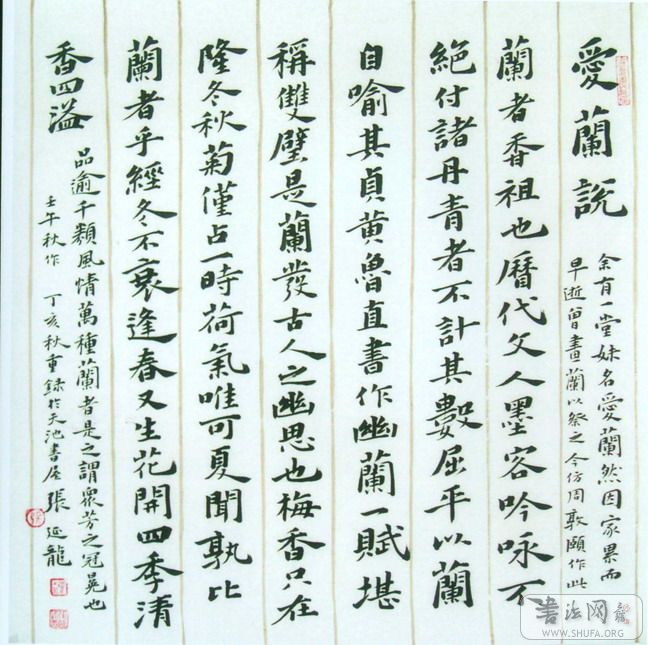 愛蘭説
余有一堂妹名愛蘭然因家累而
早逝曾畫蘭以祭之今仿周敦頤作此
蘭者香祖也曆代文人墨客吟咏不
絶付諸丹青者不計其數屈平以蘭
自喻其貞黄魯直書作幽蘭一賦堪
稱雙璧是蘭發古人之幽思也梅香只在
隆冬秋菊僅占一時荷氣唯可夏聞孰比
蘭者乎經冬不衰逢春又生花開四季清
香四溢
品逾千類風情萬種蘭者是之謂衆芳之冠冕也
壬午秋作 丁亥秋重録於天池書屋張延龍
書法网
WWW.SHUFA.ORG